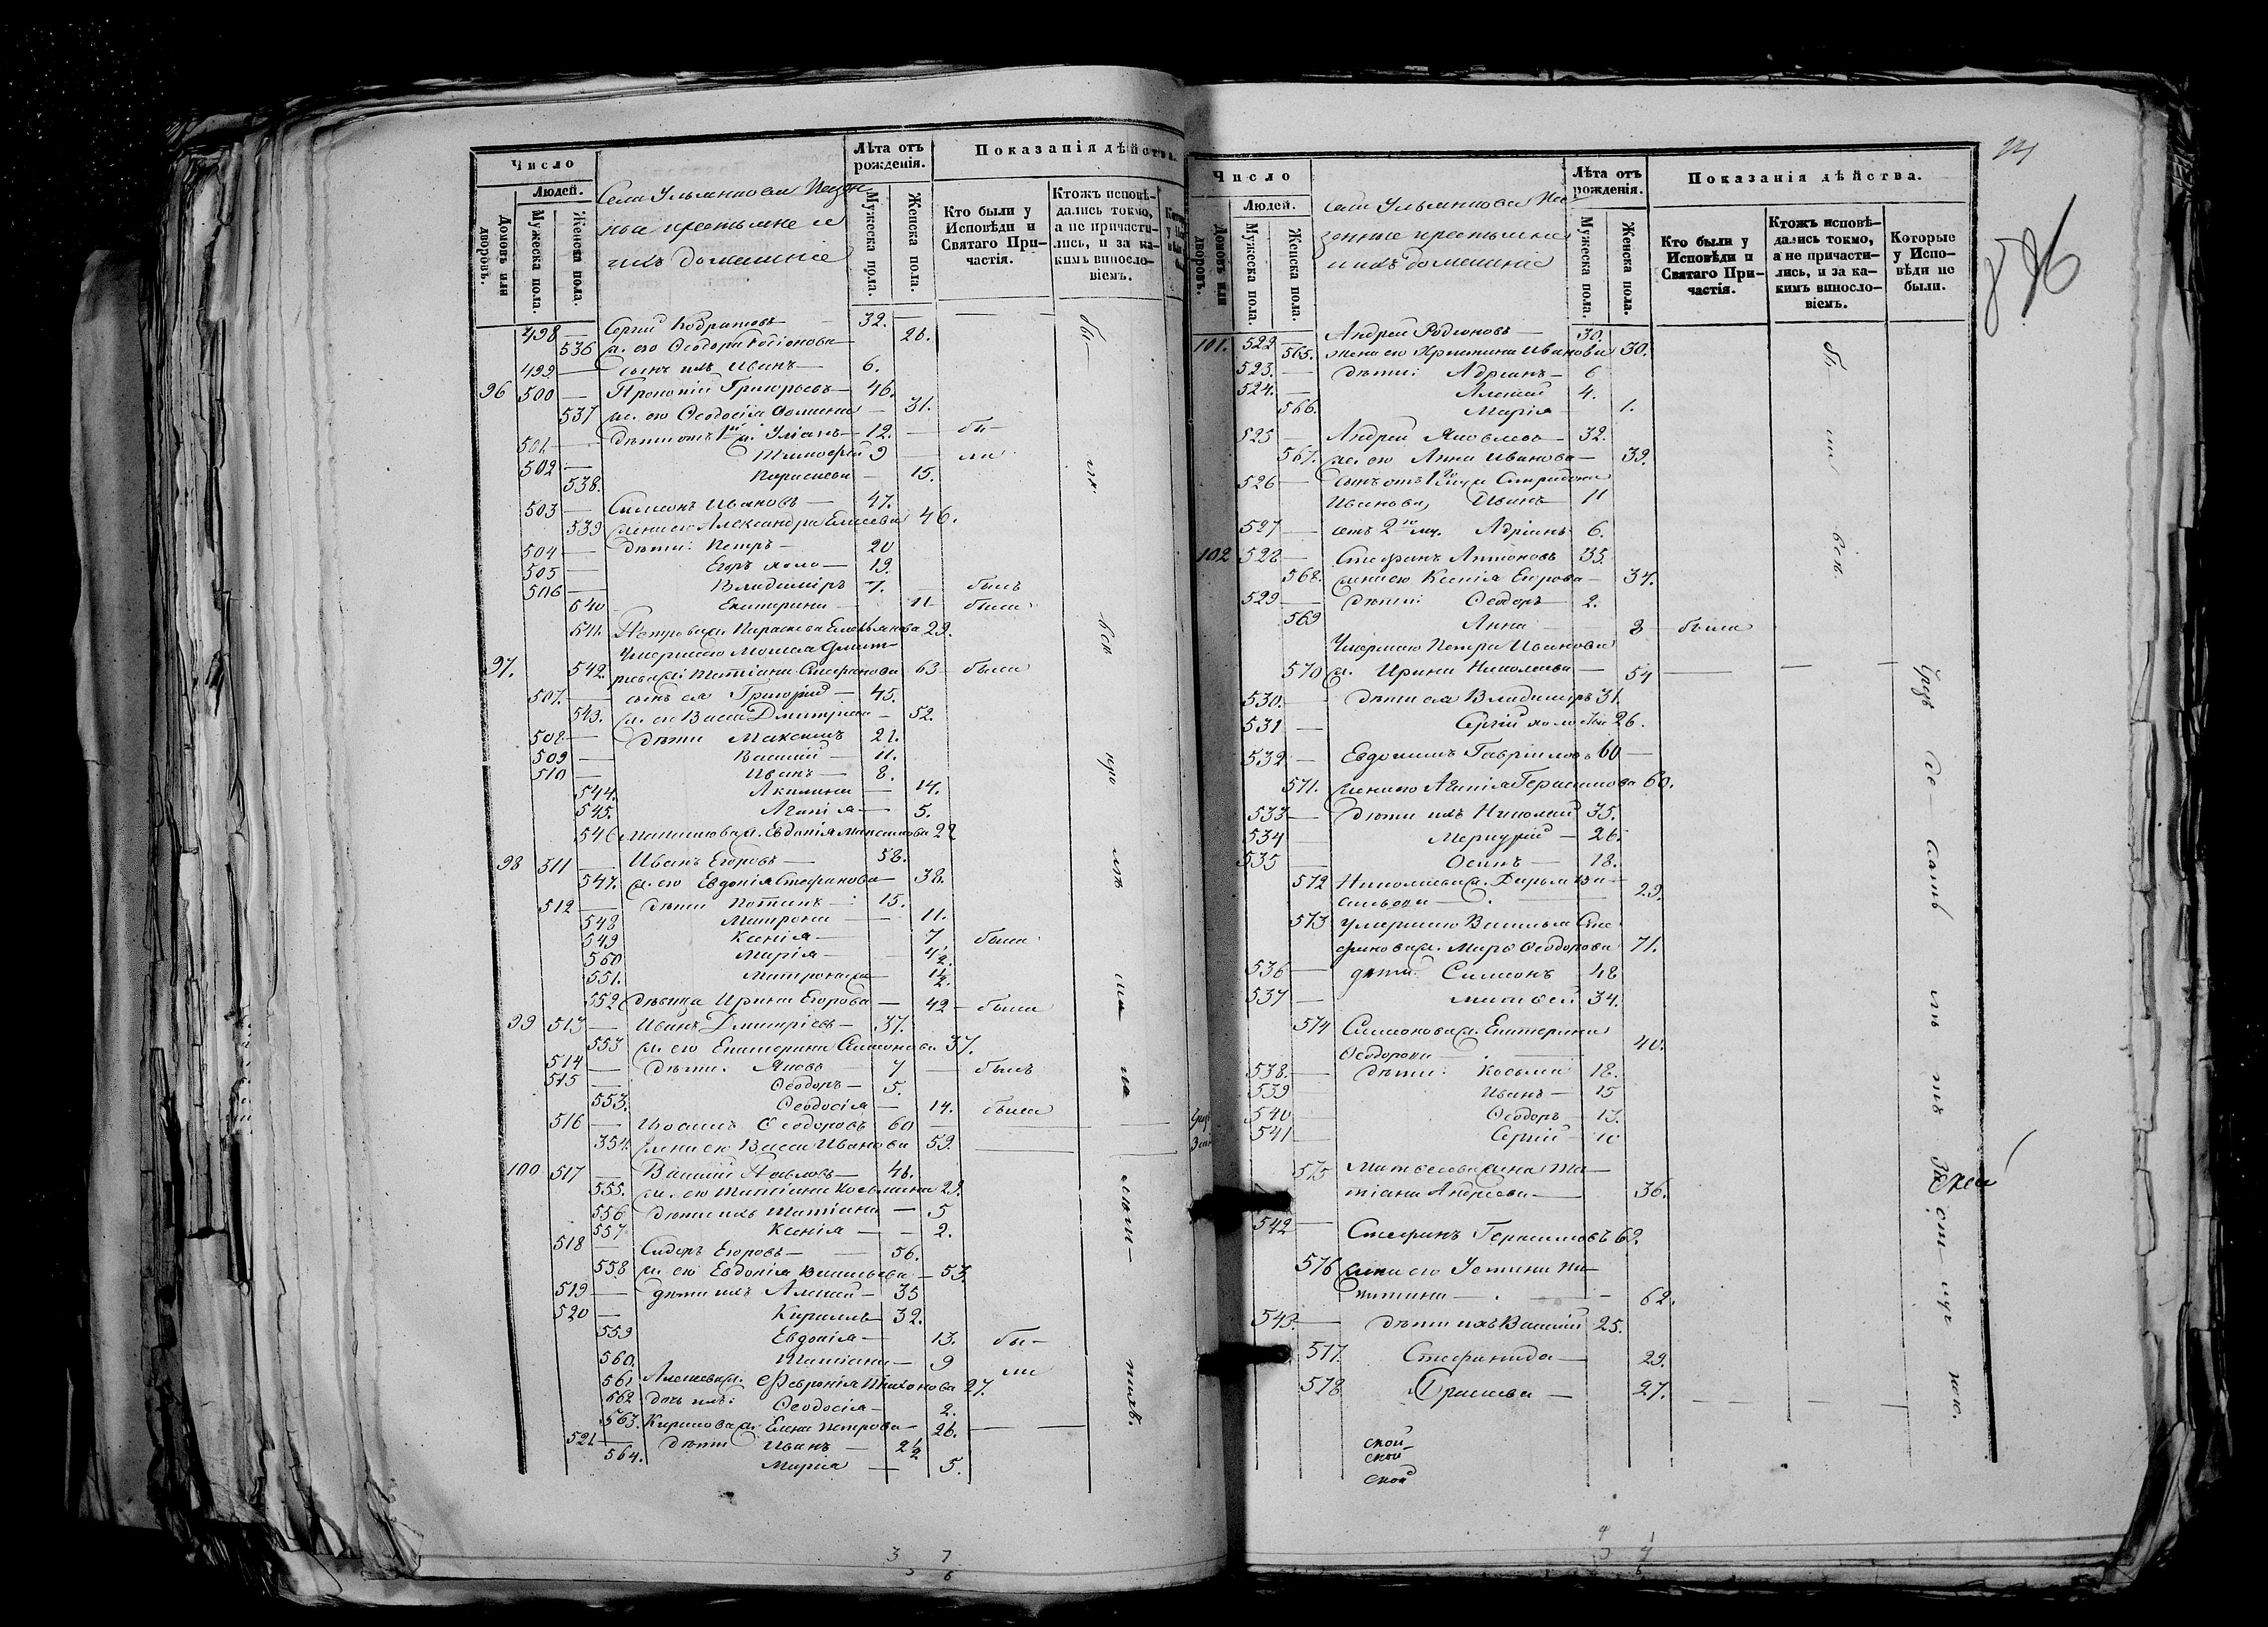 Число
Людей.
Домовъ или дворовъ.
Мужеска пола.
Женска пола.
Села Ульянкова Казен
ные крестьяне и
ихъ домашніе
Лѣта отъ рожденія.
Мужеска пола.
Женска пола.
Показанія дѣйства.
Кто были у Исповѣди и Святаго Причастія.
Ктожъ исповѣдались токмо, а не причастились, и за какимъ винословіемъ.
498 — Сергій Кодратовъ — 32.
536 ж. его Ѳеодора Родіонова — 26.
499 — сынъ ихъ Иванъ — 6.
96 500 — Прокопій Григорьевъ — 46.
537 ж. его Ѳеодосія Фомина — 31.
501 — дѣти отъ 1й ж. Уліанъ — 12. — бы-
502 — Тимофей 9 — ли
538. Параскева — 15.
503 — Симеонъ Ивановъ — 47.
539 жена его Александра Елисеева 46.
504 — дѣти: Петръ — 20
505 — Егоръ холо — 19.
506 — Владиміръ 7. былъ
540 Екатерина — 11 — была
541. Петрова ж. Параскева Емельянова 29.
Умершаго Моисея Дмит-
97. 542. ріева ж: Татіана Стефанова 63 — была
507. — сынъ ея Григорій — 45.
543. ж. его Васса Дмитріева — 52.
508 — дѣти Максимъ 21.
509 — Василій — 11.
510 — Иванъ — 8.
544. Акилина — 14.
545. Агапія — 5.
546 Максимова ж. Евдокія Максимова 22
98 511 — Иванъ Егоровъ — 58.
547. ж. его Евдокія Стефанова — 38.
512 — дѣти Потапъ — 15.
548 Матрона — 11.
549 Ксенія — 7 была
560 Марія — 4½.
551. Матрона — 1½
552 Дѣвица Ирина Егорова — 42 — была
99 513 — Иванъ Дмитріевъ — 37.
553 ж. его Екатерина Симонова 37.
514 — дѣти. Яковъ — 7 — былъ
515 — Ѳеодоръ — 5.
553. Ѳеодосія — 14. была
516 — Іоакимъ Ѳеодоровъ 60
354. жена его Васса Иванова 59.
100 517 — Василій Павловъ — 46.
555. ж. его Татіана Косьмина 29.
556 дѣти ихъ Татіана — 5
557. Ксенія — 2.
518 — Сидоръ Егоровъ — 56.
558 ж. его Евдокія Васильева — 53.
519 — дѣти ихъ Алексій — 35
520 — Кириллъ — 32.
559 Евдокія — 13. бы-
560. Татіана — 9 ли
561 Алексѣева ж. Февронія Тихонова 27.
562 дочь ихъ: Ѳеодосія — 2.
563. Кирилова ж. Елена Петрова — 26.
521 — дѣти Иванъ — 2½
564. Марія — 5.
Число
Людей.
Домовъ или дворовъ.
Мужеска пола.
Женска пола.
Села Ульянкова Ка-
зенные крестьяне
и ихъ домашніе
Лѣта отъ рожденія.
Мужеска пола.
Женска пола.
Показанія дѣйства.
Кто были у Исповѣди и Святаго Причастія.
Ктожъ исповѣдались токмо, а не причастились, и за какимъ винословіемъ.
Которые у Исповѣди не были.
101. 522 — Андрей Родіоновъ — 30.
565. жена его Христина Иванова 30.
523. — дѣти: Адріанъ — 6
524. — Алексій 4.
566. Марія — 1.
525 — Андрей Яковлевъ — 32.
567. ж. его Анна Иванова — 39.
526 — сынъ отъ 1го мужа Спиридона
Иванова, Иванъ — 11
527 — отъ 2го му. Адріанъ 6.
102 528 — Стефанъ Антоновъ 35.
568. жена его Ксенія Егорова — 34.
529 — дѣти: Ѳеодоръ — 2.
569 Анна — 8 — была
Умершаго Петра Иванова
570 ж. Ирина Николаева — 54
530. — дѣти ея Владиміръ 31.
531 — Сергій холостой 26.
532 — Евдокимъ Гавріиловъ 60
571. жена его Агапія Герасимова 60.
533 — дѣти ихъ Николай 35.
534 Меркурій — 26.
535 — Осипъ — 18.
572 Николаева ж. Дарья Ва-
сильева — 29.
573 умершаго Василья Сте
фанова ж. Мара Ѳеодорова 71.
536 — дѣти. Симеонъ 48
537 — Матвей 34.
574 Симеонова ж. Екатерина
Ѳеодорова — 40.
538. — дѣти: Косьма 18.
539 Иванъ — 15
540 — Ѳеодоръ — 13.
541 Сергій — 10
575 Матвеева жена Та-
тіана Андреева — 36.
542 — Стефанъ Герасимовъ 62.
576 жена его Устина Ни-
китина — 62.
543. — дѣти ихъ Василій 25.
517. Стефанида — 29.
578 Параскева — 27.
ской
ской
ской